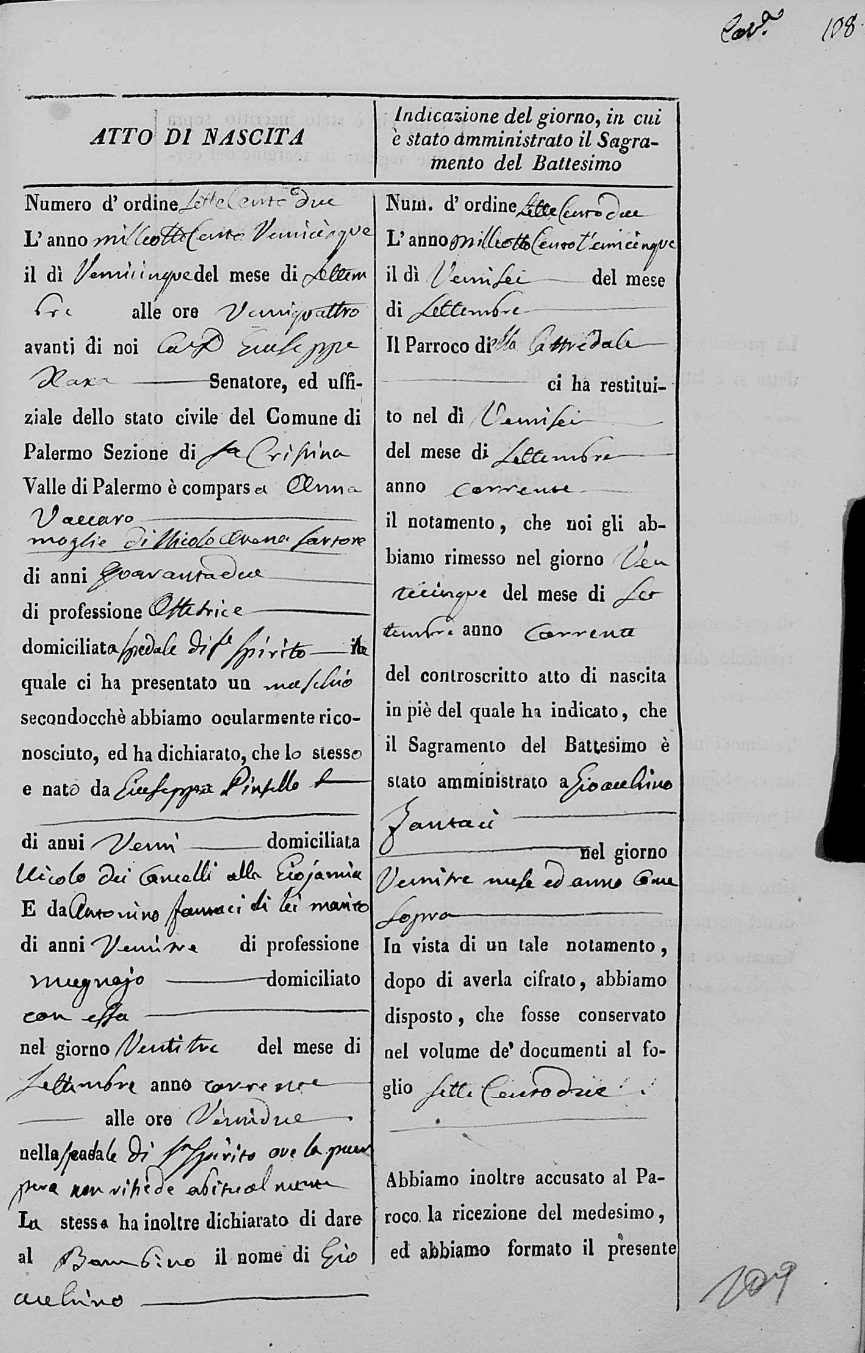 108
ATTO DI NASCITA
Numero d' ordine Settecentodue
L' anno milleottocento Venticinque
il dì Venticinque del mese di Settem
bre alle ore Ventiquattro
avanti di noi Giuseppe
Senatore, ed uffi-
ziale dello stato civile del Comune di
Palermo Sezione di Sa Cristina
Valle di Palermo è comparsa Anna
Vaccaro
moglie di Nicolò Sartore
di anni quarantadue
di professione Ostetrice
domiciliata spedale di So Spirito la
quale ci ha presentato un maschio
secondocchè abbiamo ocularmente rico-
nosciuto, ed ha dichiarato, che lo stesso
e nato da Giuseppa
di anni Venti domiciliata
Vicolo dei Cancelli alla
E da Antonino Fantaci di lei marito
di anni Ventitre di professione
mugnajo domiciliato
con essa
nel giorno Ventitre del mese di
Settembre anno corrente
alle ore Ventidue
nella spedale di So Spirito ove la puer
pera non risiede abitualmente
La stessa ha inoltre dichiarato di dare
al Bambino il nome di Gio
acchino
Indicazione del giorno, in cui
è stato amministrato il Sagra-
mento del Battesimo
Num. d' ordine Settecentodue
L' anno milleottocento Venticinque
il dì Ventisei del mese
di Settembre
Il Parroco della Cattedrale
ci ha restitui-
to nel dì Ventisei
del mese di Settembre
anno corrente
il notamento, che noi gli ab-
biamo rimesso nel giorno Ven
ticinque del mese di Set
tembre anno corrente
del controscritto atto di nascita
in piè del quale ha indicato, che
il Sagramento del Battesimo è
stato amministrato a Gioacchino
Fantaci
nel giorno
Ventitre mese ed anno come
sopra
In vista di un tale notamento,
dopo di averla cifrato, abbiamo
disposto, che fosse conservato
nel volume de' documenti al fo-
glio Settecentodue
Abbiamo inoltre accusato al Pa-
roco la ricezione del medesimo,
ed abbiamo formato il presente
109